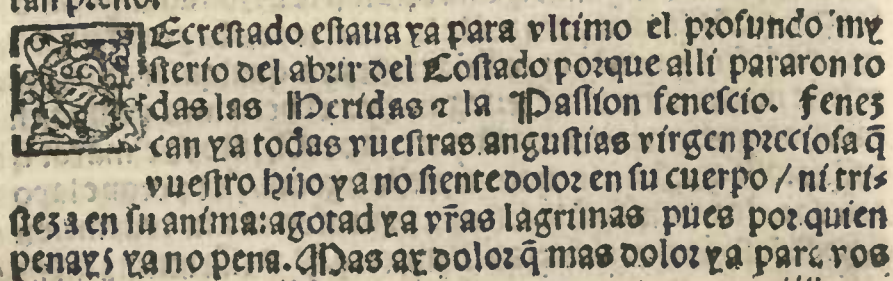 DEcrestado estaua ya para vltimo el profundo my
sterio del abrir del Costado porque alli pararon to
das las Heridas ⁊ la Passion fenescio. Fenez
can ya todas vuestras angustias virgen preciosa q̃
vuestro hijo ya no siente dolor en su cuerpo / ni tris
steza en su anima: agotad ya vr̃as lagrimas pues por quien
penays ya no pena. ¶ Mas ay dolor q̃ mas dolor ya para vos